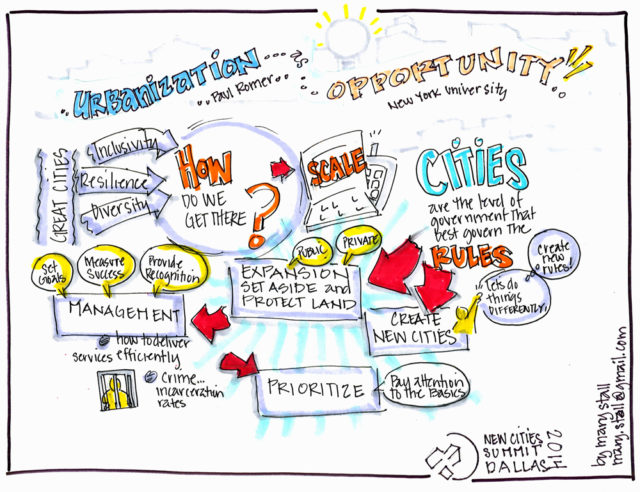 URBANIZATION as OPPORTUNITY
Paul Romer
New York University
GREAT CITIES
Inclusivity
Resilience
Diversity
HOW
DO WE
GET THERE
?
SCALE
CITIES
are the level of
government that
best govern the
RULES
Create
new
rules!
Let's do
things
DIFFERENTLY!
PUBLIC
PRIVATE
EXPANSION
SET ASIDE and
PROTECT LAND
Set
Goals
Measure
Success
Provide
Recognition
MANAGEMENT
how to deliver
services efficiently
Crime...
incarceration
rates
CREATE
NEW CITIES
PRIORITIZE
Pay attention
to the Basics
NEW CITIES
SUMMIT
DALLAS
2014
by mary stall
mary.stall@gmail.com